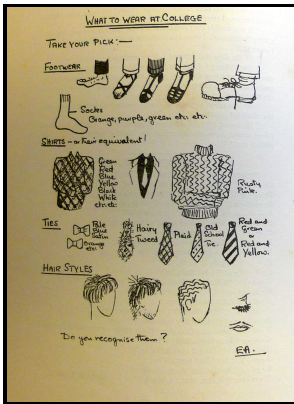 WHAT TO WEAR AT COLLEGE
TAKE YOUR PICK:—
FOOTWEAR
Socks
Orange, purple, green etc. etc.
SHIRTS — or their equivalent!
Green
Red
Blue
Yellow
Black
White
etc. etc.
Rusty
Pink.
TIES
Pale
Blue
Satin
Orange
etc.
Hairy
Tweed
Plaid
Old
School
Tie.
Red and
Green
or
Red and
Yellow.
HAIR STYLES
Do you recognise them?
E.A.